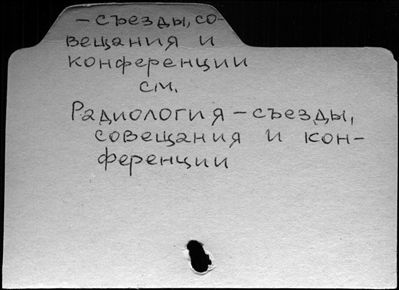 - съезды, со-
вещания и
конференции
см.
Радиология - съезды,
совещания и кон-
ференции